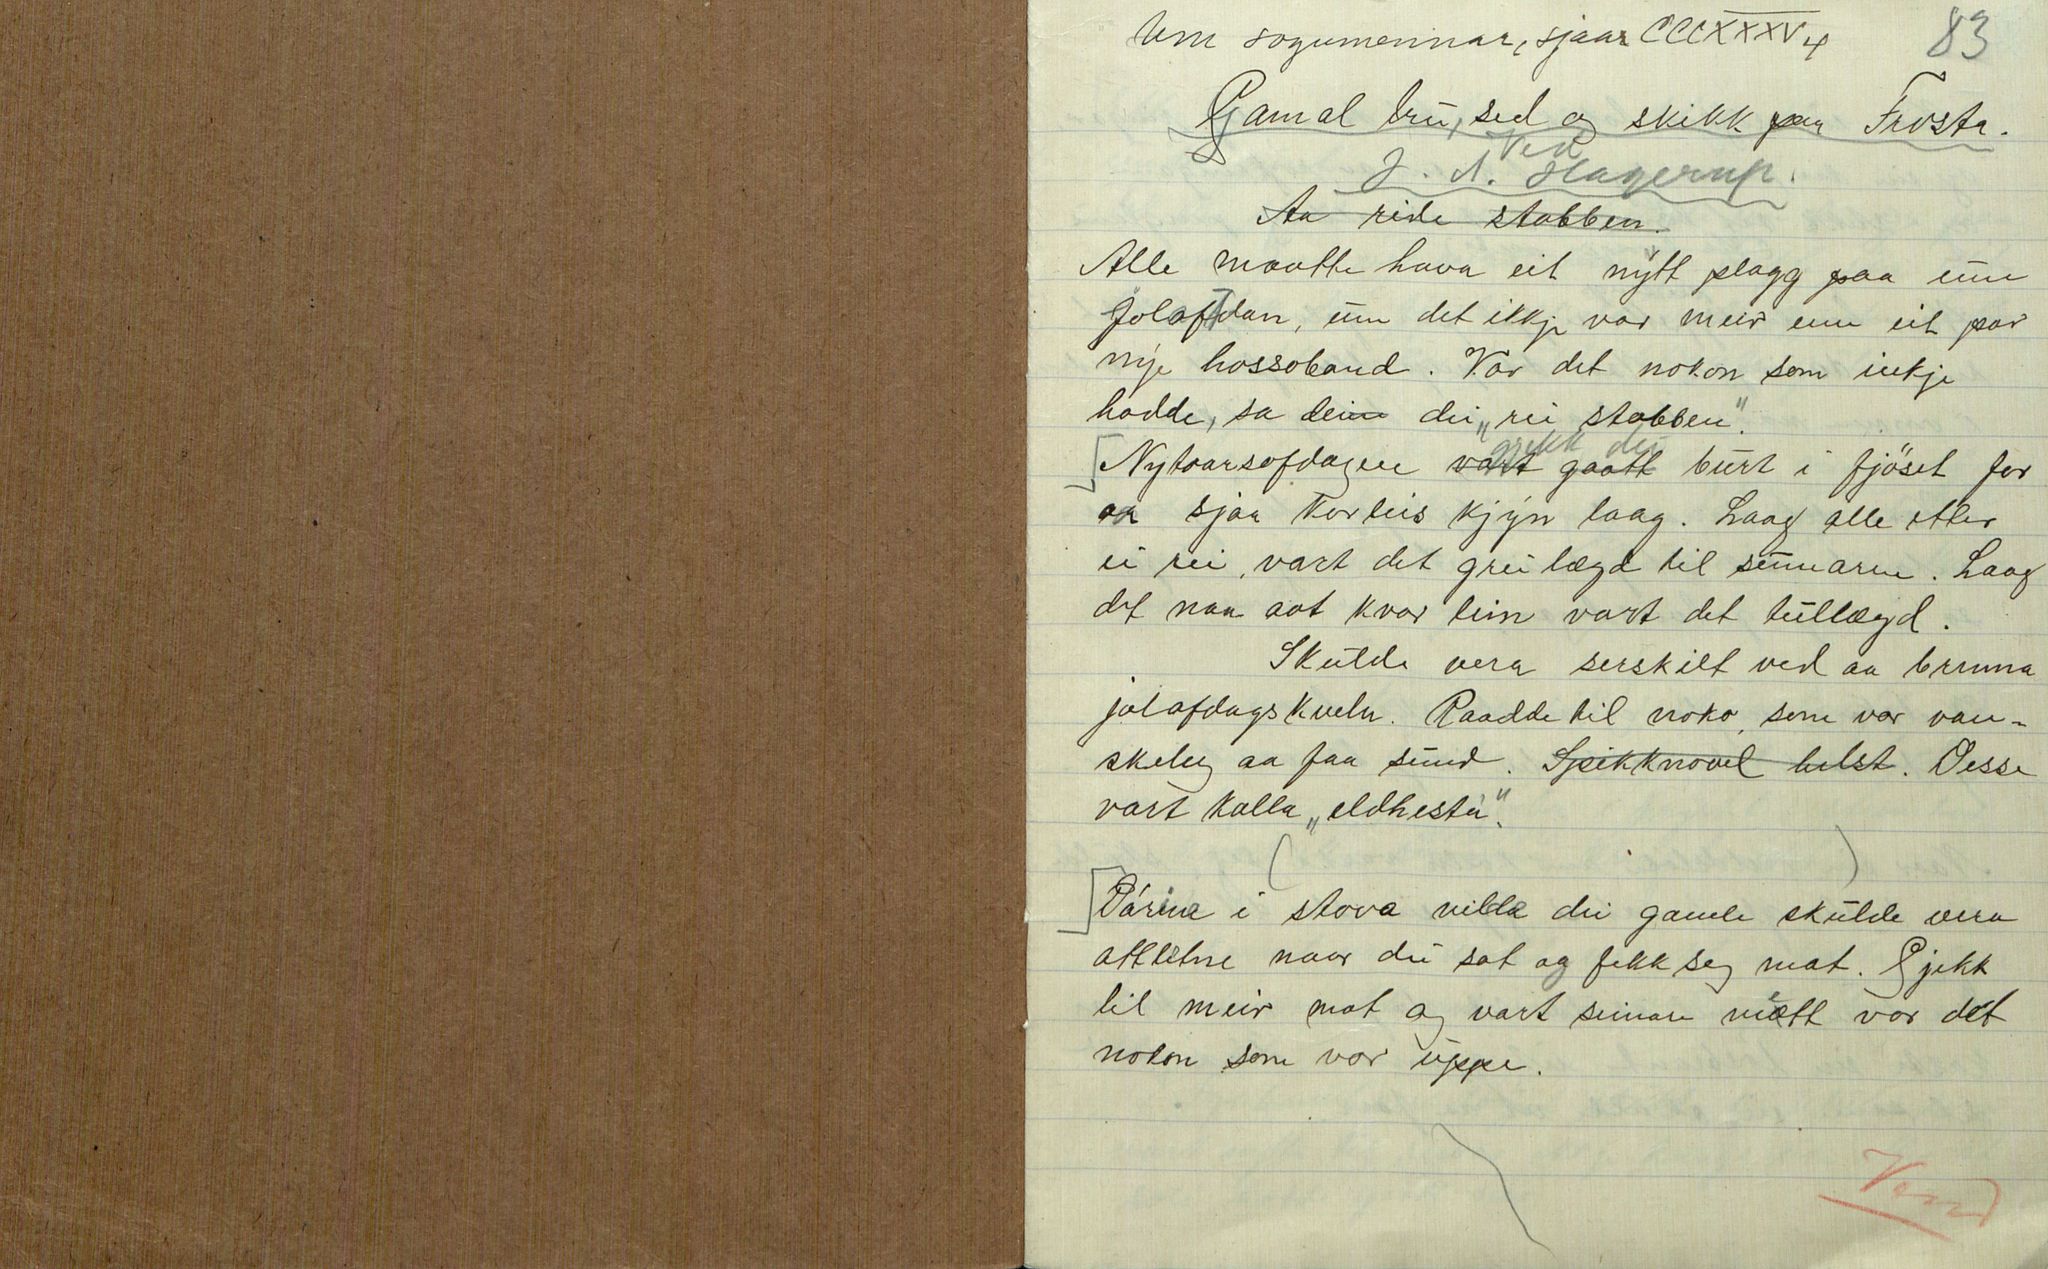 Um sogumennar, sjaa CCCXXXV 4
83
Gamal tru, sed og skikk paa Frosta.
Ved
J. A. Hagerup.
Aa ride stabben.
Alle maatte hava eit nytt plagg paa um
Jolaftdan, um det ikkje var meir enn eit par
nye hossoband. Var det nokon som inkje
hadde, sa dei „rei stabben".
gjekk dei
Nytaarsafdagen vart gaatt burt i fjöset for
aa sjaa korleis kjyn laag. Laag alle etter
ei rei, vart det grei lægd til sumaren. Laag
det naa aat kvar lein vart det tullægd.
Skulde vera serskilt ved aa brenna
jolafdagskveln. Raadde til noko, som var van-
skeleg aa faa sund. Spikknavel helst. Desse
vart kalla „eldhesta".
i stova vilde dei gamle skulde vera
attletne naar dei sat og fekk seg mat. Gjekk
til meir mat og vart seinare mett var det
nokon som var uppe.
Vend